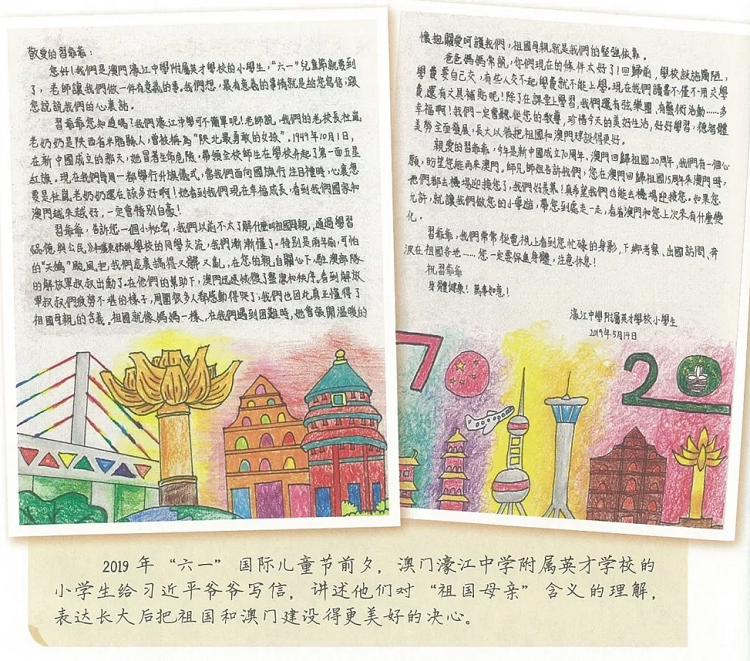 敬愛的習爺爺：
您好！我們是澳門濠江中學附屬英才學校的小學生，"六一"兒童節就要到
了，老師讓我們做一件有意義的事，我們想，最有意義的事情就是給您寫信，跟
您說說我們的心裏話。
習爺爺您知道嗎？我們濠江中學可不簡單呢！老師說，我們的老校長杜嵐
老奶奶是陝西省米脂縣人，曾被稱為"陝北最勇敢的女孩"。1949年10月1日，
在新中國成立的那天，她冒着生命危險，帶領全校師生在學校升起了第一面五星
紅旗。現在我們每周一都舉行升旗儀式，當我們面向國旗行注目禮時，心裏想
要是杜嵐老奶奶還在該多好啊！她看到我們現在幸福成長，看到我們國家和
澳門越來越好，一定會特別自豪！
習爺爺，告訴您一個小秘密，我們以前不太了解什麼叫祖國母親，通過學習
的"天鴿"颱風，把我們家裏搞得又髒又亂，在您的親自關心下，駐澳部隊
的解放軍叔叔出動了。在他們的幫助下，澳門迅速恢復了整潔和秩序。看到解放
軍叔叔們疲勞不堪的樣子，周圍很多人都感動得哭了，我們也因此真正懂得了
祖國母親的含義。祖國就像媽媽一樣，在我們遇到困難時，她會張開溫暖的
懷抱，關愛呵護我們，祖國母親，就是我們的堅強依靠。
爸爸媽媽常說，你們現在的條件太好了！回歸前，學校設施簡陋，
學費要自己交，有些人交不起學費就不能上學。現在我們讀書不僅不用交學
費，還有文具補貼呢！除了在課堂上學習，我們還有弦樂團、有藝術活動……多
幸福啊！我們一定會聽從您的教導，珍惜今天的美好生活，好好學習，德智體
美勞全面發展，長大以後把祖國和澳門建設得更好。
親愛的習爺爺，今年是新中國成立70周年、澳門回歸祖國20周年，我們有一個心
願，盼望您能再來澳門。師兄師姐告訴我們，您在澳門回歸祖國15周年來澳門時，
他們都去機場迎接您了，我們好羨慕！真希望我們也能去機場迎接您。如果您
允許，就讓我們做您的小導遊，帶您到處走一走，看看澳門和您上次來有什麼變
化。
習爺爺，我們常常從電視上看到您忙碌的身影，下鄉考察、出國訪問、奔
波在祖國各地……您一定要保重身體，注意休息！
祝習爺爺
身體健康！萬事如意！
濠江中學附屬英才學校小學生
2019年5月19日
70
20
2019 年"六一"国际儿童节前夕，澳门濠江中学附属英才学校的
小学生给习近平爷爷写信，讲述他们对"祖国母亲"含义的理解，
表达长大后把祖国和澳门建设得更美好的决心。